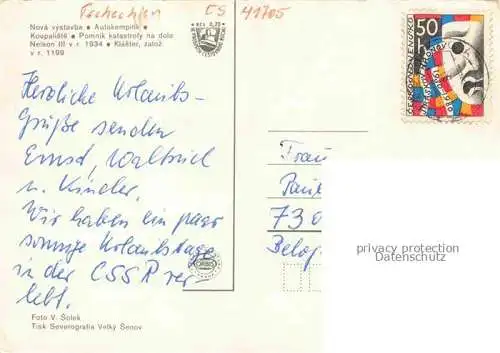 Tschechien
CS
41705
Nová výstavba • Autokempink •
Koupaliště • Pomník katastrofy na dole
Nelson III v r. 1934 • Klášter, založ.
v r. 1199
Herzliche Urlaubs-
Grüße senden
Ernst, Waltraud
u. Kinder.
Wir haben ein paar
sonnige Urlaubstage
in der CSSR ver-
lebt.
Foto V. Šolek
Tisk Severografia Velký Šenov
50
h
ČESKOSLOVENSKO
Frau
730
privacy protection
Datenschutz
ORBIS